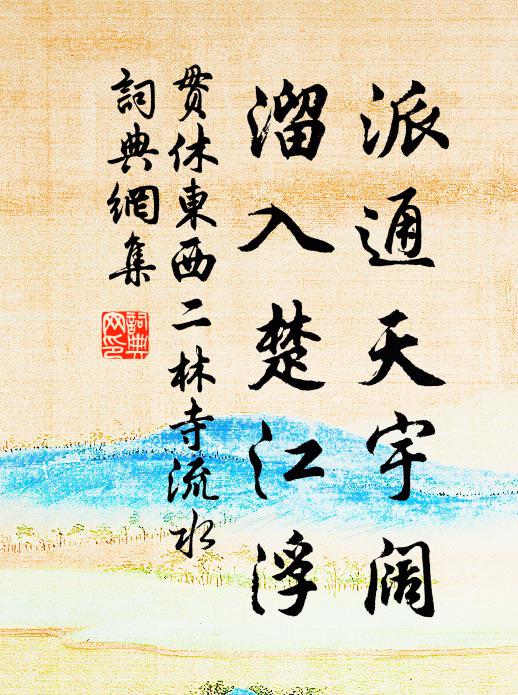 派通天宇阔
溜入楚江浮
贯休東西二林寺流水
詞典網集
詞典网印